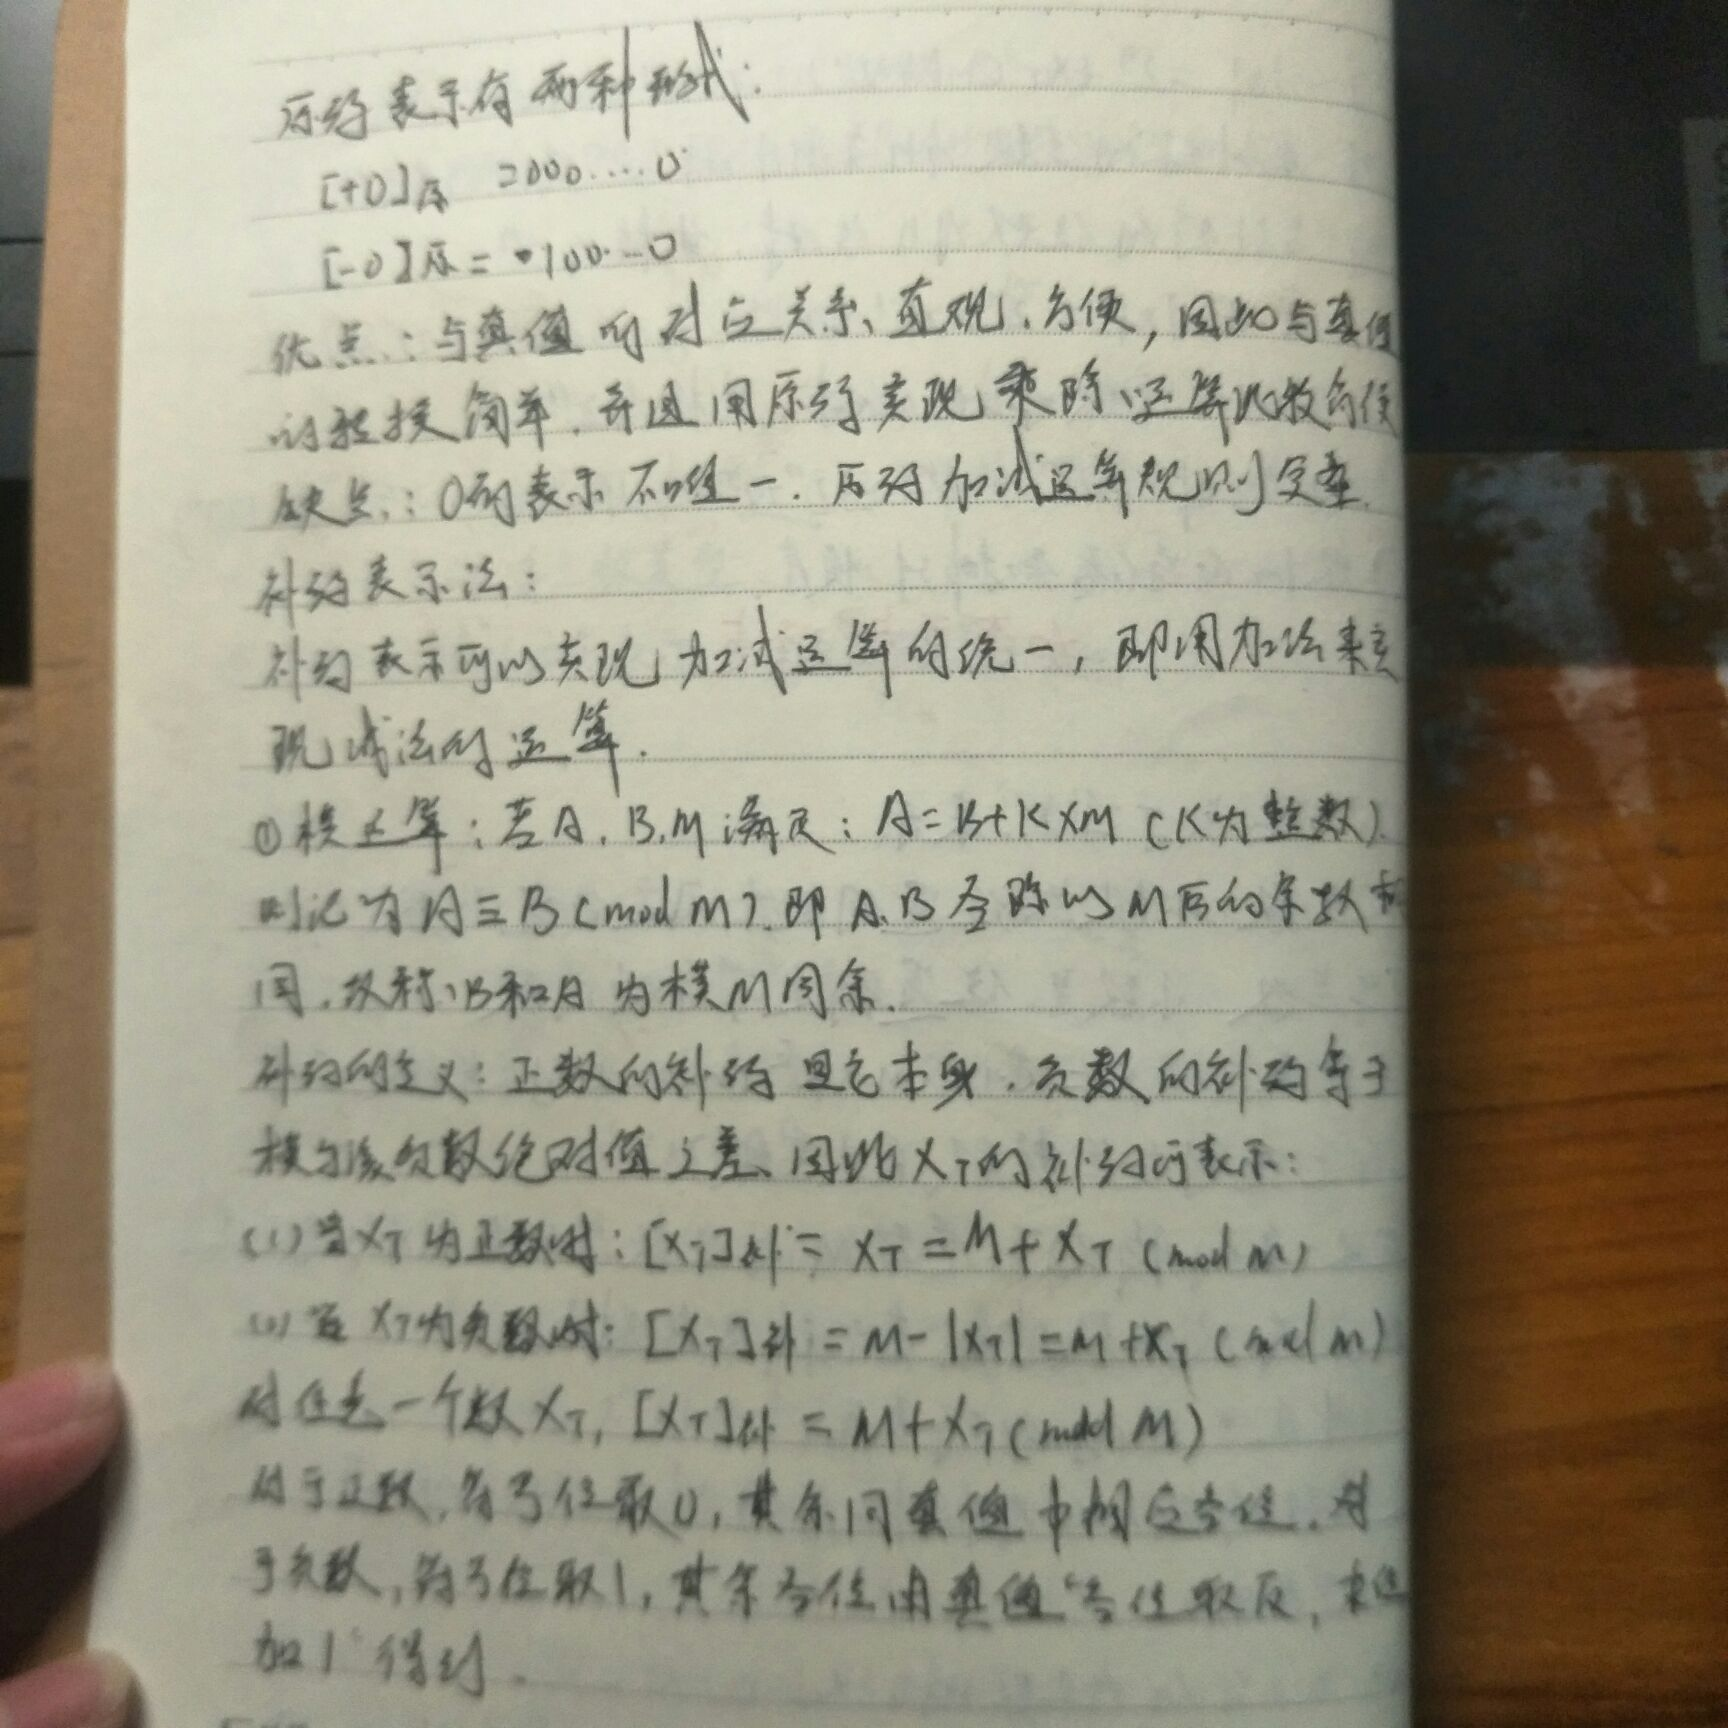 原码表示有两种形式：
[+0]原 =000····0
[-0]原 = 100···0
优点：与真值的对应关系、直观、方便，因此与真值
的转换简单，并且用原码实现乘除运算比较方便
缺点：0的表示不唯一，原码加减运算规则复杂.
补码表示法：
补码表示可以实现加减运算的统一，即用加法来实
现减法的运算.
①模运算：若A、B、M满足：A=B+K×M (K为整数).
则记为A≡B(mod M).即A、B各除以M后的余数相
同，故称B和A为模M同余.
补码的定义：正数的补码是它本身，负数的补码等于
模与该负数绝对值之差、因此XT的补码可表示：
(1)当XT为正数时：[XT]补 = XT = M + XT (mod M)
(2)当XT为负数时：[XT]补 = M-|XT| = M+XT (mod M)
对任意一个数XT，[XT]补 = M+XT (mod M)
对于正数，符号位取0，其余同真值中相应各位，对
于负数，符号位取1，其余各位由真值“各位取反，末位
加1”得到.